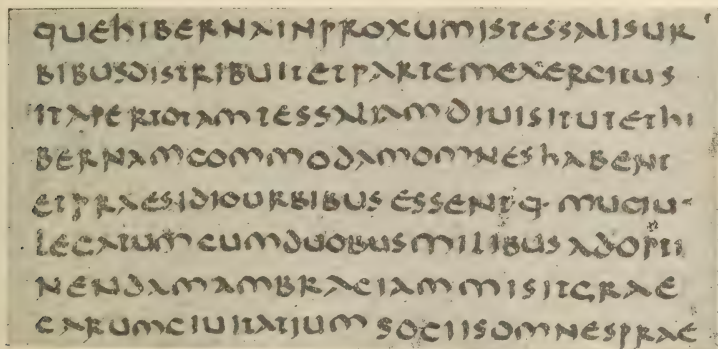 QUEhIBERNAINPROXUMISTESSALISUR
BIBUSDISTRIBUITETPARTEMEXERCITUS
ITAPERTOTAMTESSALIAMDIUISITUTEThI
BERNAMCOMMODAMOMNEShABENT
ETPRAESIDIOURBIBUS ESSENTQ· MUCIU-
LEGATUMCUMDUOBUSMILIBUS ADOPTI
NENDAMAMBRACIAMMISITGRAE
CARUMCIUITATIUM SOCIISOMNESPRAE